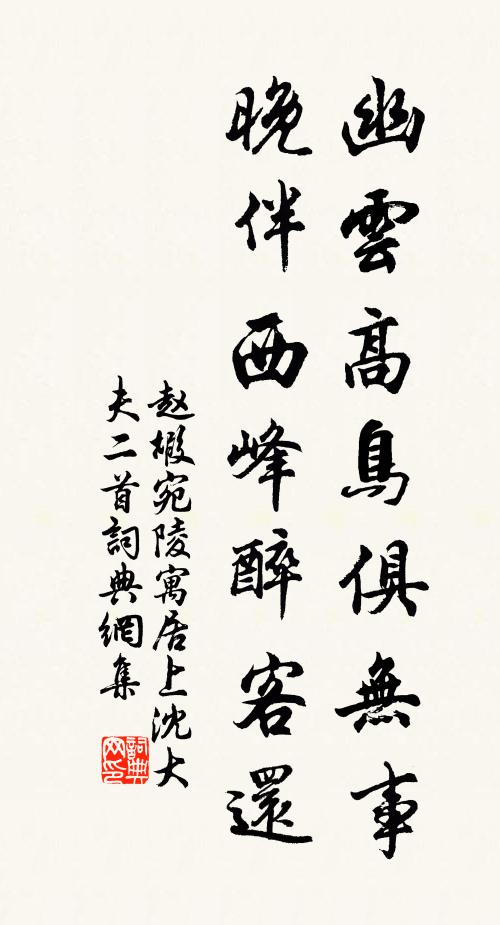 幽雲高鳥俱無事
晚伴西峰醉客還
赵嘏宛陵寓居上沈大
夫二首詞典網集
詞典
网印